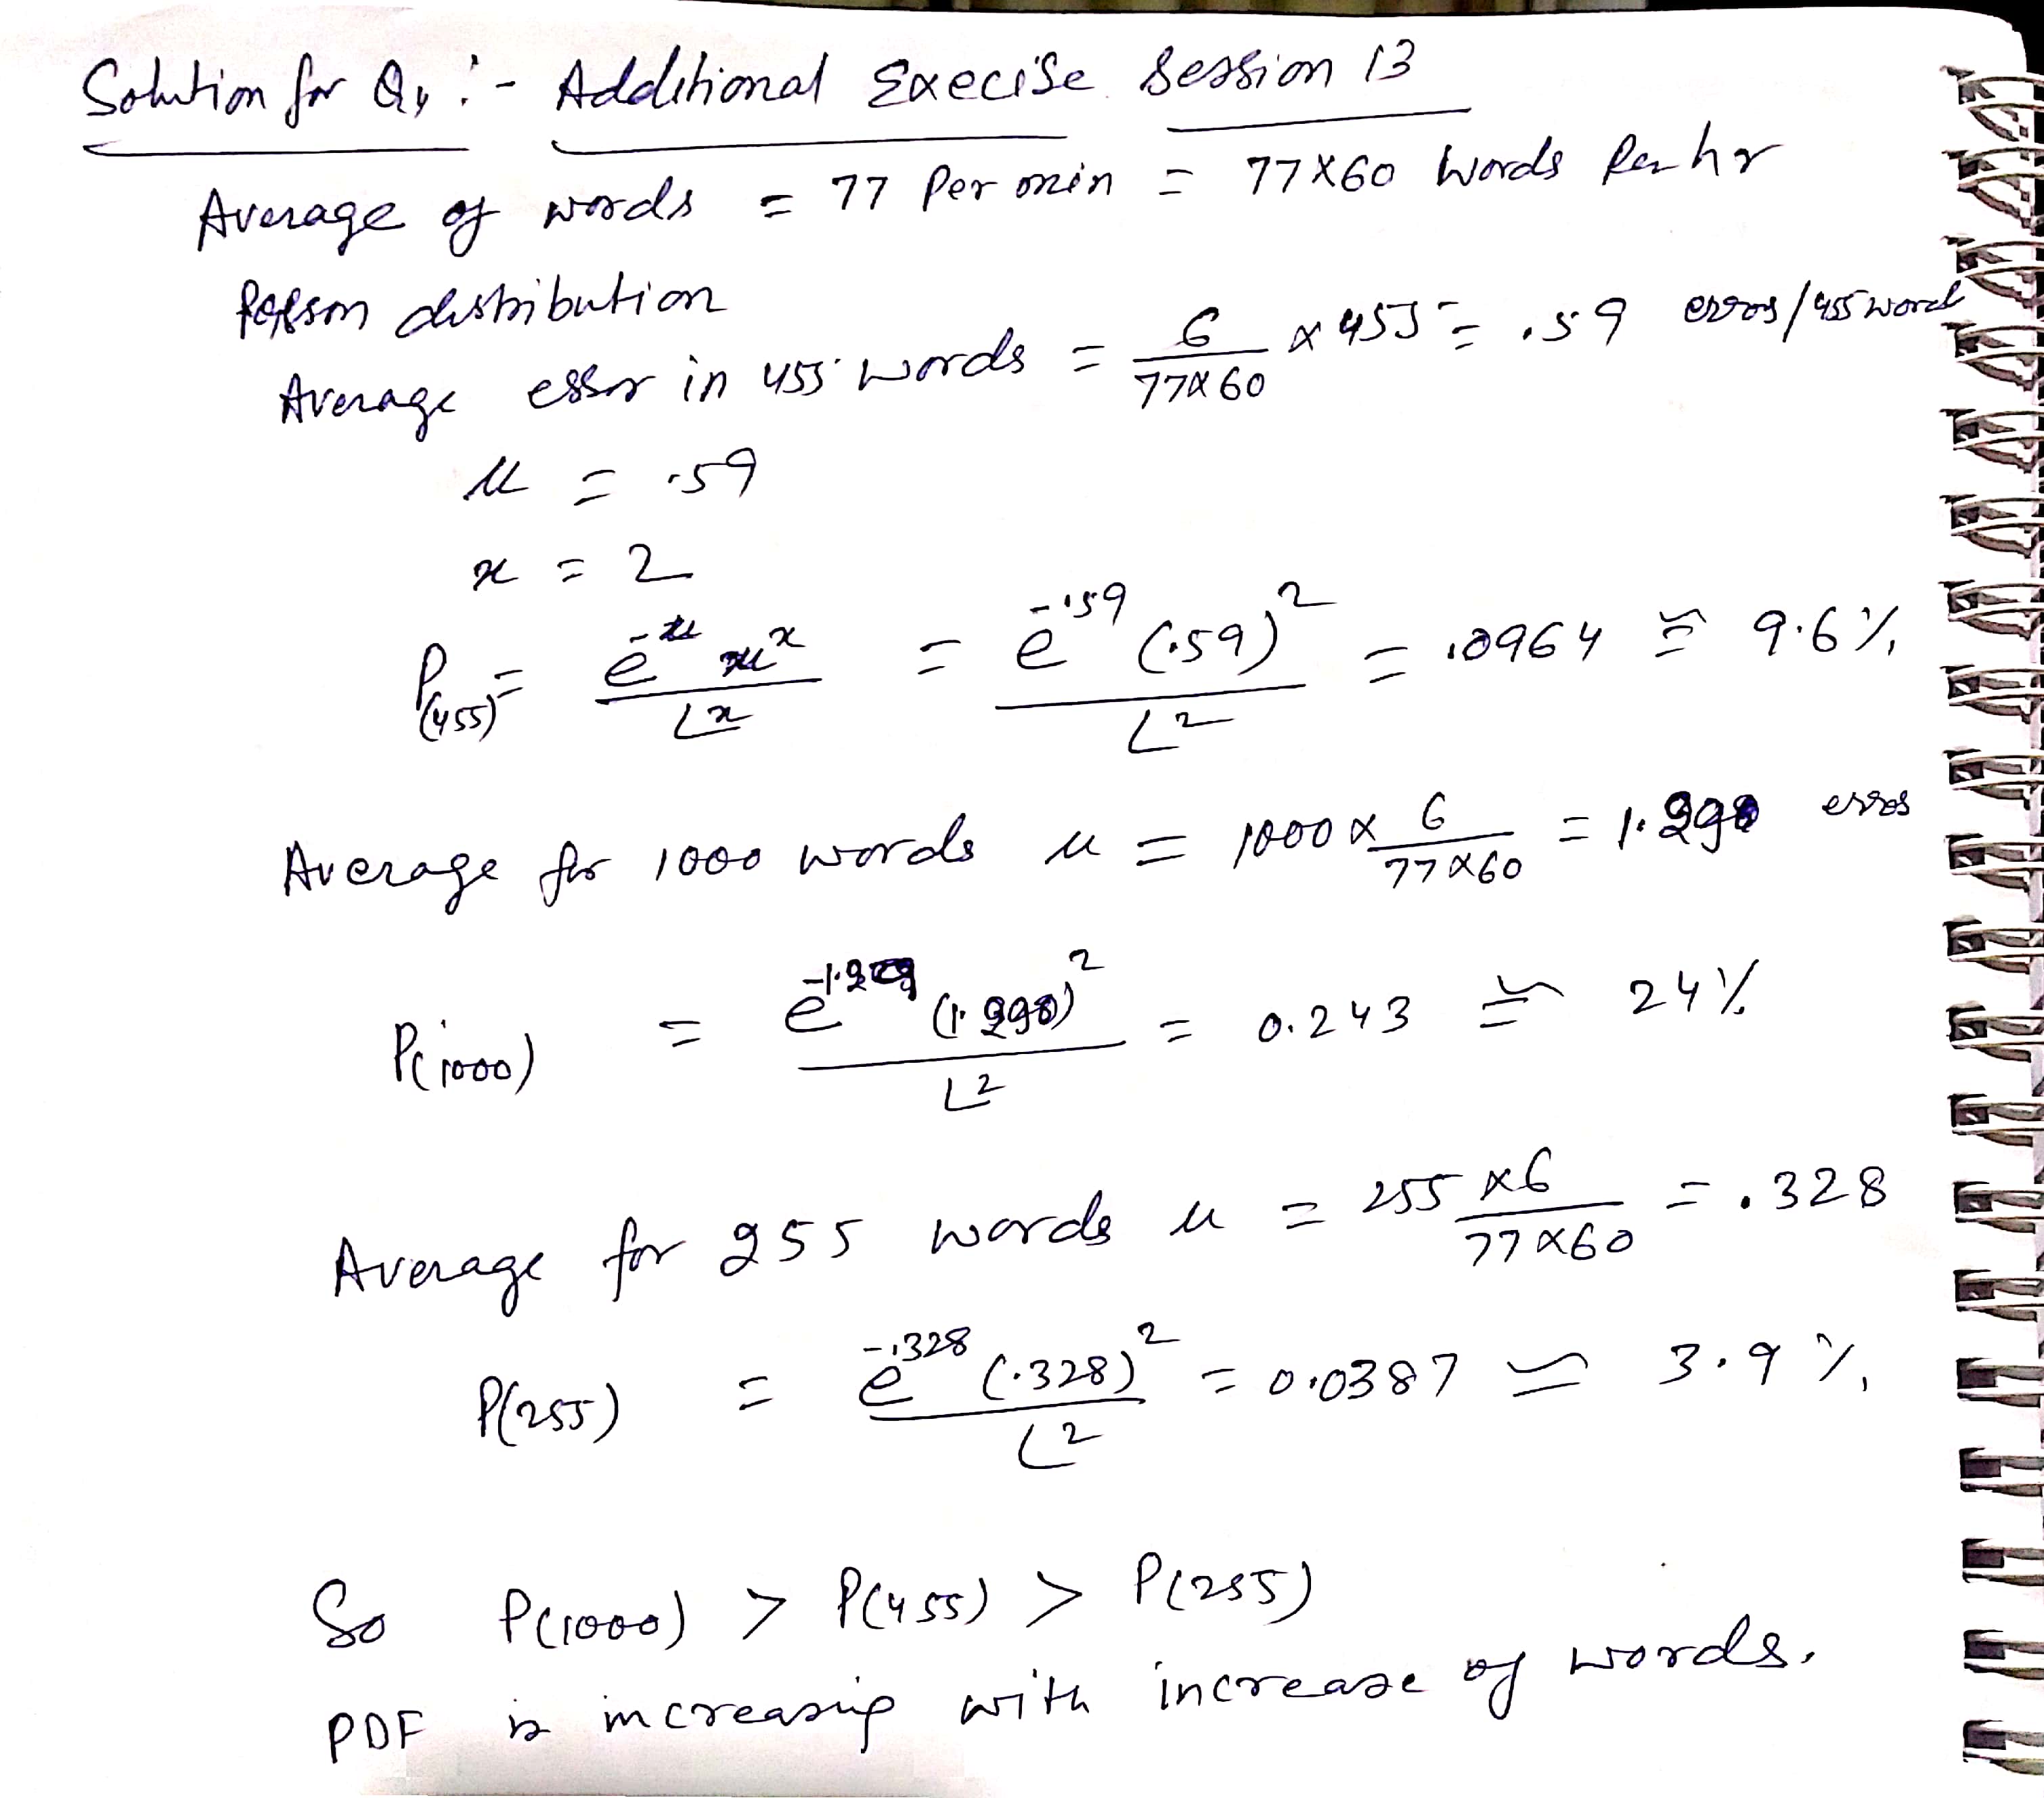 Solution for Q4 :- Additional Execise Session 13
Average of words = 77 Per min = 77x60 words Per hr
Poisson distribution
Average error in 455 words = 6/77x60 x 455 = .59 erros/455 word
μ = .59
x = 2
P(455) = e^-μ μ^x / ∟x = e^-.59 (.59)^2 / ∟2 = .0964 ≅ 9.6%
Average for 1000 words μ = 1000 x 6/77x60 = 1.298 erros
P(1000) = (1.298)^2 / ∟2 = 0.243 ≅ 24%
Average for 255 words μ = 255 x 6/77x60 = .328
P(255) = e^-.328 (.328)^2 / ∟2 = 0.0387 ≃ 3.9%
So P(1000) > P(455) > P(255)
PDF is increasing with increase of words.